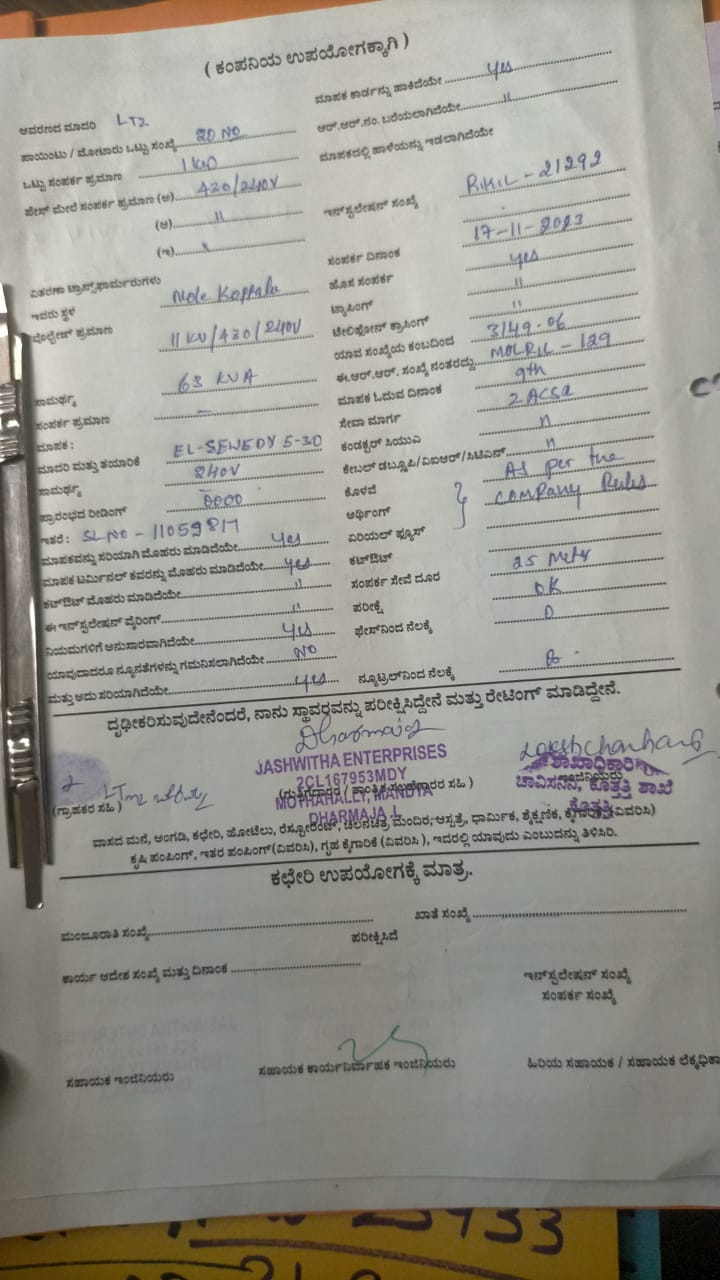 ( ಕಂಪನಿಯ ಉಪಯೋಗಕ್ಕಾಗಿ )
ಆವರಣದ ಮಾದರಿ LT2
ಪಾಯಿಂಟು / ಮೋಟಾರು ಒಟ್ಟು ಸಂಖ್ಯೆ 20 NO
ಒಟ್ಟು ಸಂಪರ್ಕ ಪ್ರಮಾಣ 1 KW
ಫೇಸ್ ಮೇಲೆ ಸಂಪರ್ಕ ಪ್ರಮಾಣ (ಅ) 430/240V
(ಆ) "
(ಇ) "
ವಿತರಣಾ ಟ್ರಾನ್ಸ್‌ಫಾರ್ಮರುಗಳು
ಇದರು ಸ್ಥಳ Nole Koppalu
ವೋಲ್ಟೇಜ್ ಪ್ರಮಾಣ 11 KV/430/240V
ಸಾಮರ್ಥ್ಯ 63 KVA
ಸಂಪರ್ಕ ಪ್ರಮಾಣ —
ಮಾಪಕ :
ಮಾದರಿ ಮತ್ತು ತಯಾರಿಕೆ EL-SEWEDY 5-30
ಸಾಮರ್ಥ್ಯ 240V
ಪ್ರಾರಂಭದ ರೀಡಿಂಗ್ 0000
ಇತರೆ : SL NO - 11059817
ಮಾಪಕವನ್ನು ಸರಿಯಾಗಿ ಮೊಹರು ಮಾಡಿದೆಯೇ yes
ಮಾಪಕ ಟರ್ಮಿನಲ್ ಕವರನ್ನು ಮೊಹರು ಮಾಡಿದೆಯೇ yes
ಕಟ್‌ಔಟ್ ಮೊಹರು ಮಾಡಿದೆಯೇ "
ಈ ಇನ್‌ಸ್ಟಲೇಷನ್ ವೈರಿಂಗ್ "
ನಿಯಮಗಳಿಗೆ ಅನುಸಾರವಾಗಿದೆಯೇ yes
ಯಾವುದಾದರೂ ನ್ಯೂನತೆಗಳನ್ನು ಗಮನಿಸಲಾಗಿದೆಯೇ NO
ಮತ್ತು ಅದು ಸರಿಯಾಗಿದೆಯೇ yes
ಮಾಪಕ ಕಾರ್ಡನ್ನು ಹಾಕಿದೆಯೇ yes
ಆರ್.ಆರ್.ನಂ. ಬರೆಯಲಾಗಿದೆಯೇ "
ಮಾಪಕದಲ್ಲಿ ಹಾಳೆಯನ್ನು ಇಡಲಾಗಿದೆಯೇ
ಇನ್‌ಸ್ಟಲೇಷನ್ ಸಂಖ್ಯೆ - 21292
ಸಂಪರ್ಕ ದಿನಾಂಕ 17-11-2023
ಹೊಸ ಸಂಪರ್ಕ yes
ಟ್ಯಾಪಿಂಗ್ "
ಟೆಲಿಫೋನ್ ಕ್ರಾಸಿಂಗ್ "
ಯಾವ ಸಂಖ್ಯೆಯ ಕಂಬದಿಂದ 3/49-06
ಈ.ಆರ್.ಆರ್. ಸಂಖ್ಯೆ ನಂತರದ್ದು MOLRIL - 129
ಮಾಪಕ ಓದುವ ದಿನಾಂಕ 9th
ಸೇವಾ ಮಾರ್ಗ 2 ACSR
ಕಂಡಕ್ಟರ್ ಸಿಯುವಿ "
ಕೇಬಲ್ ಡಬ್ಲೂಪಿ/ವಿಐಆರ್/ಸಿಟಿಎನ್ "
ಕೊಳವೆ As per the
ಅರ್ಥಿಂಗ್ company Rules
ಏರಿಯಲ್ ಫ್ಯೂಸ್
ಕಟ್‌ಔಟ್
ಸಂಪರ್ಕ ಸೇವೆ ದೂರ 25 Mets
ಪರೀಕ್ಷೆ OK
ಫೇಸ್‌ನಿಂದ ನೆಲಕ್ಕೆ 0
ನ್ಯೂಟ್ರಲ್‌ನಿಂದ ನೆಲಕ್ಕೆ
ದೃಢೀಕರಿಸುವುದೇನೆಂದರೆ, ನಾನು ಸ್ಥಾವರವನ್ನು ಪರೀಕ್ಷಿಸಿದ್ದೇನೆ ಮತ್ತು ರೇಟಿಂಗ್ ಮಾಡಿದ್ದೇನೆ.
Dharmaraj
JASHWITHA ENTERPRISES
2CL167953MDY
MOTHAHALLY, MANDYA
DHARMAJA .L
(ಗ್ರಾಹಕರ ಸಹಿ)
(ಗುತ್ತಿಗೆದಾರರ / ತಾಂತ್ರಿಕ ಸಹಿ )
ಶಾಖಾಧಿಕಾರಿ
ಇಂಜಿನಿಯರು
ಚಾವಿಸನಿನಿ, ಕೊತ್ತತ್ತಿ ಶಾಖೆ
ಕೊತ್ತತ್ತಿ
ವಾಸದ ಮನೆ, ಅಂಗಡಿ, ಕಛೇರಿ, ಹೋಟೆಲು, ರೆಸ್ಟೋರೆಂಟ್, ಚಲನಚಿತ್ರ ಮಂದಿರ, ಆಸ್ಪತ್ರೆ, ಧಾರ್ಮಿಕ, ಶೈಕ್ಷಣಿಕ, ಕೈಗಾರಿಕೆ (ವಿವರಿಸಿ)
ಕೃಷಿ ಪಂಪಿಂಗ್, ಇತರ ಪಂಪಿಂಗ್(ವಿವರಿಸಿ), ಗೃಹ ಕೈಗಾರಿಕೆ (ವಿವರಿಸಿ ), ಇದರಲ್ಲಿ ಯಾವುದು ಎಂಬುದನ್ನು ತಿಳಿಸಿರಿ.
ಕಛೇರಿ ಉಪಯೋಗಕ್ಕೆ ಮಾತ್ರ.
ಮಂಜೂರಾತಿ ಸಂಖ್ಯೆ
ಖಾತೆ ಸಂಖ್ಯೆ
ಪರೀಕ್ಷಿಸಿದೆ
ಕಾರ್ಯ ಆದೇಶ ಸಂಖ್ಯೆ ಮತ್ತು ದಿನಾಂಕ
ಇನ್‌ಸ್ಟಲೇಷನ್ ಸಂಖ್ಯೆ
ಸಂಪರ್ಕ ಸಂಖ್ಯೆ
ಸಹಾಯಕ ಇಂಜಿನಿಯರು
ಸಹಾಯಕ ಕಾರ್ಯನಿರ್ವಾಹಕ ಇಂಜಿನಿಯರು
ಹಿರಿಯ ಸಹಾಯಕ / ಸಹಾಯಕ ಲೆಕ್ಕಧಿಕಾ